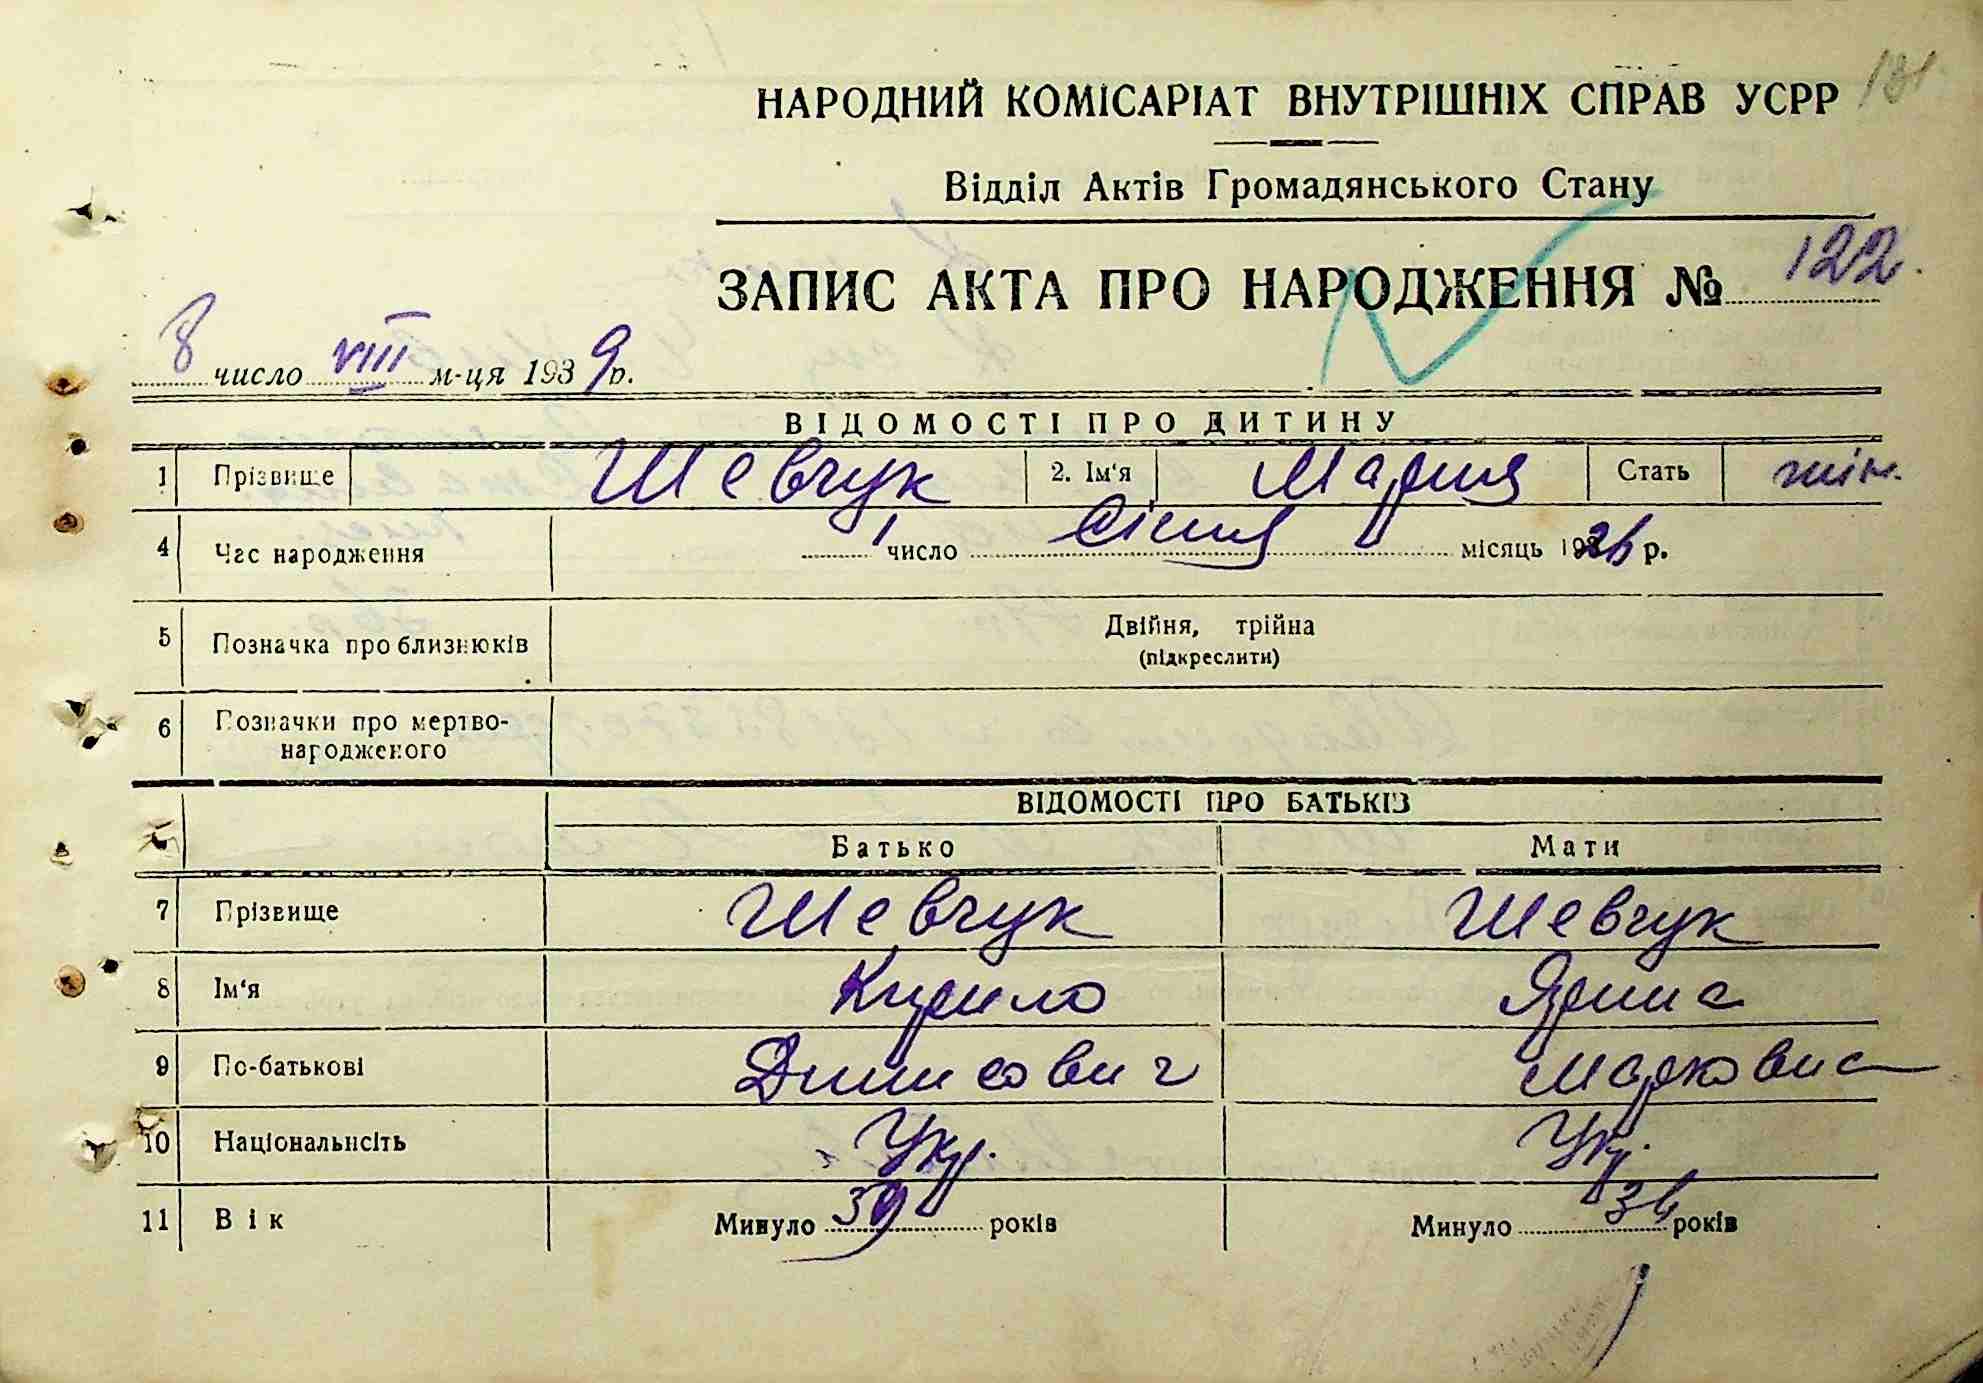 НАРОДНИЙ КОМІСАРІАТ ВНУТРІШНІХ СПРАВ УСРР
Відділ Актів Громадянського Стану
ЗАПИС АКТА ПРО НАРОДЖЕННЯ № 122.
8 число VIII м-ця 1939 р.
ВІДОМОСТІ ПРО ДИТИНУ
1 Прізвище Шевчук 2. Ім'я Мария Стать жін.
4 Час народження 1 число Січня місяць 1926 р.
5 Позначка про близнюків Двійня, трійна
(підкреслити)
6 Позначки про мертво-
народженого
ВІДОМОСТІ ПРО БАТЬКІВ
Батько Мати
7 Прізвище Шевчук Шевчук
8 Ім'я Кирило Ярина
9 По-батькові Динисович Марковна
10 Національнсіть Укр. Укр.
11 Вік Минуло 39 років Минуло 36 років